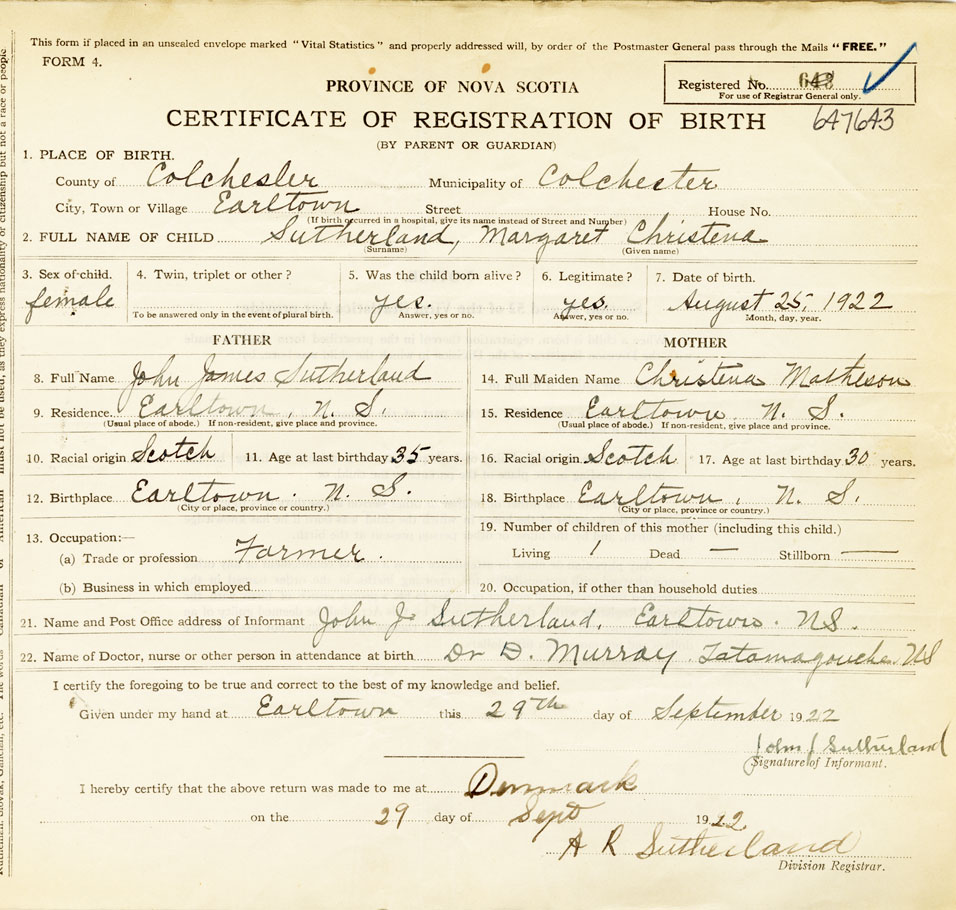 This form if placed in an unsealed envelope marked "Vital Statistics" and properly addressed will, by order of the Postmaster General pass through the Mails "FREE."
FORM 4.
Registered No. 643
For use of Registrar General only.
PROVINCE OF NOVA SCOTIA
CERTIFICATE OF REGISTRATION OF BIRTH 647643
(BY PARENT OR GUARDIAN)
1. PLACE OF BIRTH.
County of Colchester Municipality of Colchester
City, Town or Village Earltown Street House No.
(If birth occurred in a hospital, give its name instead of Street and Number)
2. FULL NAME OF CHILD Sutherland, Margaret Christena
(Surname) (Given name)
3. Sex of child. 4. Twin, triplet or other? 5. Was the child born alive? 6. Legitimate? 7. Date of birth.
female yes. yes. August 25, 1922
To be answered only in the event of plural birth. Answer, yes or no. Answer, yes or no. Month, day, year.
FATHER MOTHER
8. Full Name John James Sutherland 14. Full Maiden Name Christena Matheson
9. Residence. Earltown, N. S. 15. Residence Earltown. N. S.
(Usual place of abode.) If non-resident, give place and province. (Usual place of abode.) If non-resident, give place and province.
10. Racial origin Scotch 11. Age at last birthday 35 years. 16. Racial origin Scotch 17. Age at last birthday 30 years.
12. Birthplace Earltown. N. S. 18. Birthplace Earltown, N. S.
(City or place, province or country.) (City or place, province or country.)
13. Occupation:— 19. Number of children of this mother (including this child.)
(a) Trade or profession Farmer. Living 1 Dead — Stillborn —
(b) Business in which employed 20. Occupation, if other than household duties
21. Name and Post Office address of Informant John J. Sutherland, Earltown. N.S.
22. Name of Doctor, nurse or other person in attendance at birth Dr D. Murray Tatamagouche. N.S
I certify the foregoing to be true and correct to the best of my knowledge and belief.
Given under my hand at Earltown this 29th day of September 1922
John J Sutherland
Signature of Informant.
I hereby certify that the above return was made to me at Denmark
on the 29 day of Sept 1922
A R Sutherland
Division Registrar.